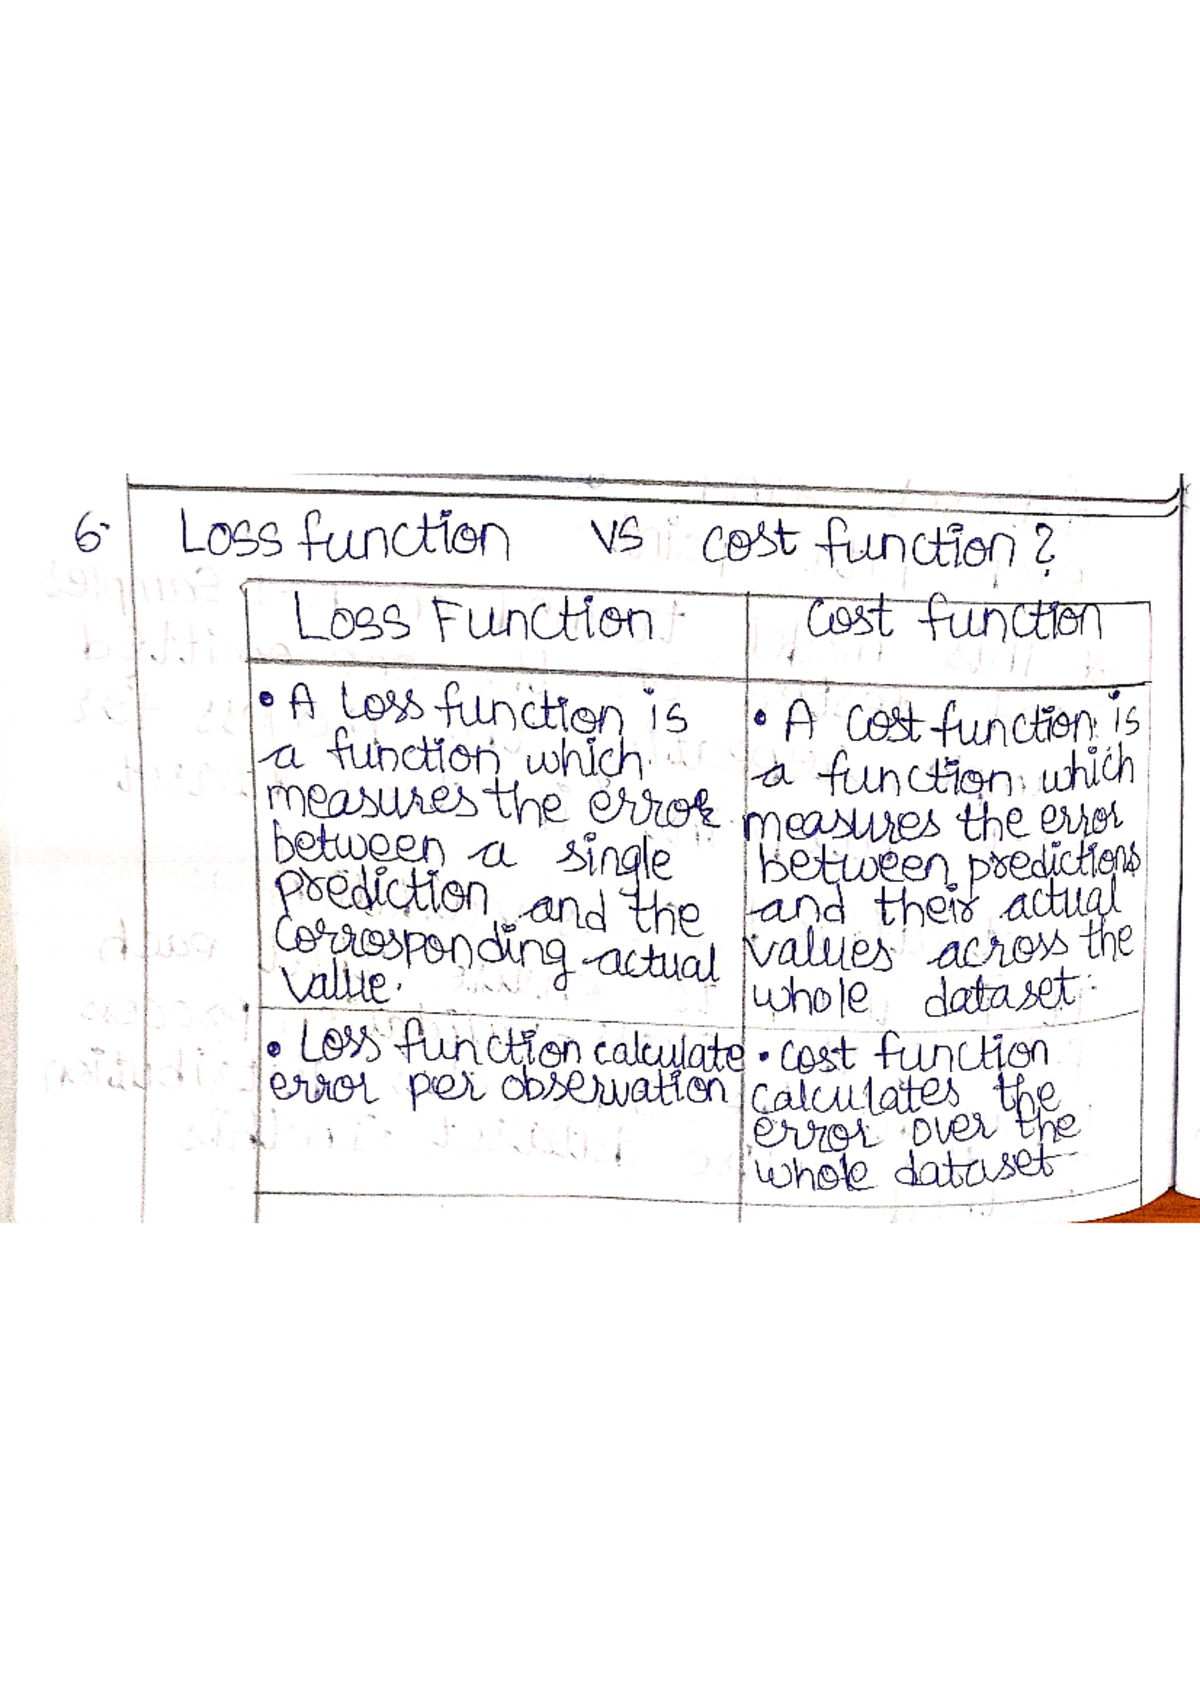 6. Loss function vs cost function?
Loss Function
Cost function
• A Loss function is
a function which
measures the error
between a single
prediction and the
corrosponding actual
value.
• A Cost function is
a function which
measures the error
between predictions
and their actual
values across the
whole dataset.
• Loss function calculate
error per observation
• cost function
calculates the
error over the
whole dataset